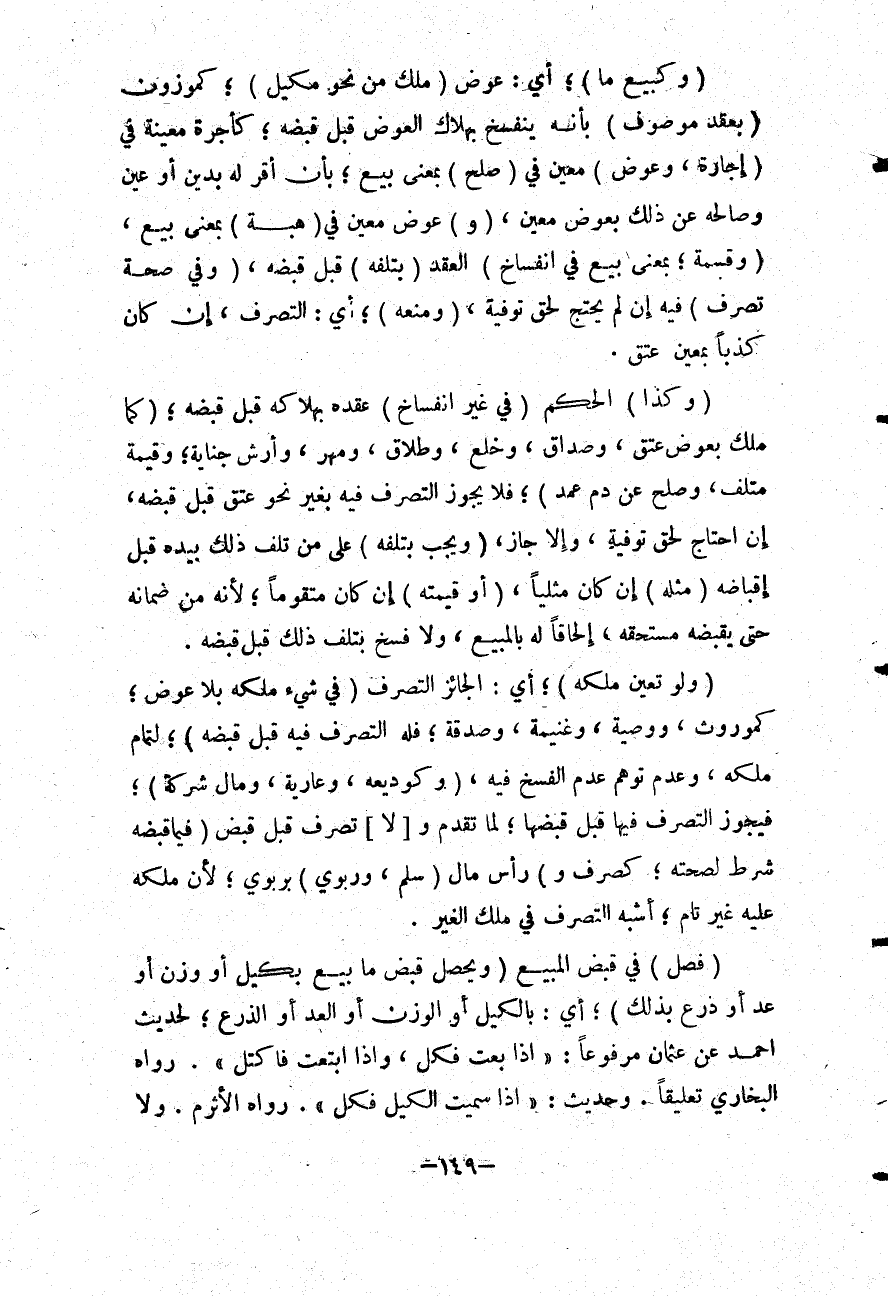 ( وكبيع ما ) ؛ أي : عوض ( ملك من نحو مكيل ) ؛ كموزون
( بعقد موصوف ) بأنه ينفسخ بهلاك العوض قبل قبضه ؛ كأجرة معينة في
( إجازة ، وعوض ) معين في ( صلح ) بمعنى بيع ؛ بأن أقر له بدين أو عين
وصالحه عن ذلك بعوض معين ، ( و ) عوض معين في ( هبة ) بمعنى بيع ،
( وقسمة ؛ بمعنى بيع في انفساخ ) العقد ( بتلفه ) قبل قبضه ، ( وفي صحة
تصرف ) فيه إن لم يحتج لحق توفية ، ( ومنعه ) ؛ أي : التصرف ، إن كان
كذباً بمعين عتق .
( وكذا ) الحكم ( في غير انفساخ ) عقده بهلاكه قبل قبضه ؛ ( كما
ملك بعوض عتق ، وصداق ، وخلع ، وطلاق ، ومهر ، وأرش جناية ؛ وقيمة
متلف ، وصلح عن دم عمد ) ؛ فلا يجوز التصرف فيه بغير نحو عتق قبل قبضه ،
إن احتاج لحق توفية ، وإلا جاز ، ( ويجب بتلفه ) على من تلف ذلك بيده قبل
إقباضه ( مثله ) إن كان مثلياً ، ( أو قيمته ) إن كان متقوماً ؛ لأنه من ضمانه
حتى يقبضه مستحقه ، إلحاقاً له بالمبيع ، ولا فسخ بتلف ذلك قبل قبضه .
( ولو تعين ملكه ) ؛ أي : الجائز التصرف ( في شيء ملكه بلا عوض ؛
كموروث ، ووصية ، وغنيمة ، وصدقة ؛ فله التصرف فيه قبل قبضه ) ؛ لتمام
ملكه ، وعدم توهم عدم الفسخ فيه ، ( وكوديعه ، وعارية ، ومال شركة ) ؛
فيجوز التصرف فيها قبل قبضها ؛ لما تقدم و [ لا ] تصرف قبل قبض ( فيماقبضه
شرط لصحته ؛ كصرف و ) رأس مال ( سلم ، وربوي ) بربوي ؛ لأن ملكه
عليه غير تام ؛ أشبه التصرف في ملك الغير .
( فصل ) في قبض المبيع ( ويحصل قبض ما بيع بكيل أو وزن أو
عد أو ذرع بذلك ) ؛ أي : بالكيل أو الوزن أو العد أو الذرع ؛ لحديث
احمد عن عثمان مرفوعاً : « اذا بعت فكل ، واذا ابتعت فاكتل » . رواه
البخاري تعليقاً . وحديث : « اذا سميت الكيل فكل » . رواه الأثرم . ولا
-١٤٩-